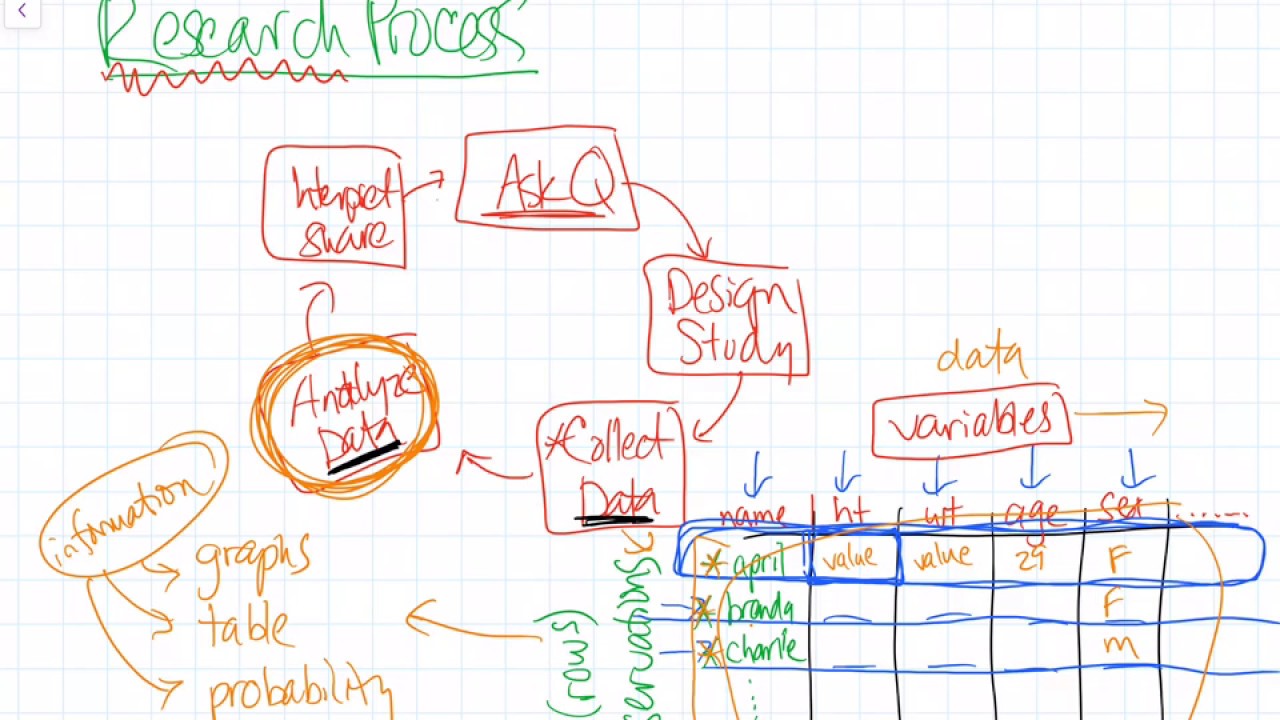 Research Process
Ask Q
Interpret
share
Design
Study
data
Analyze
Data
variables
*Collect
Data
information
name ht wt age sex .......
graphs
* april value value 29 F
table
* branda F
* charlie m
probability
(rows)
servations